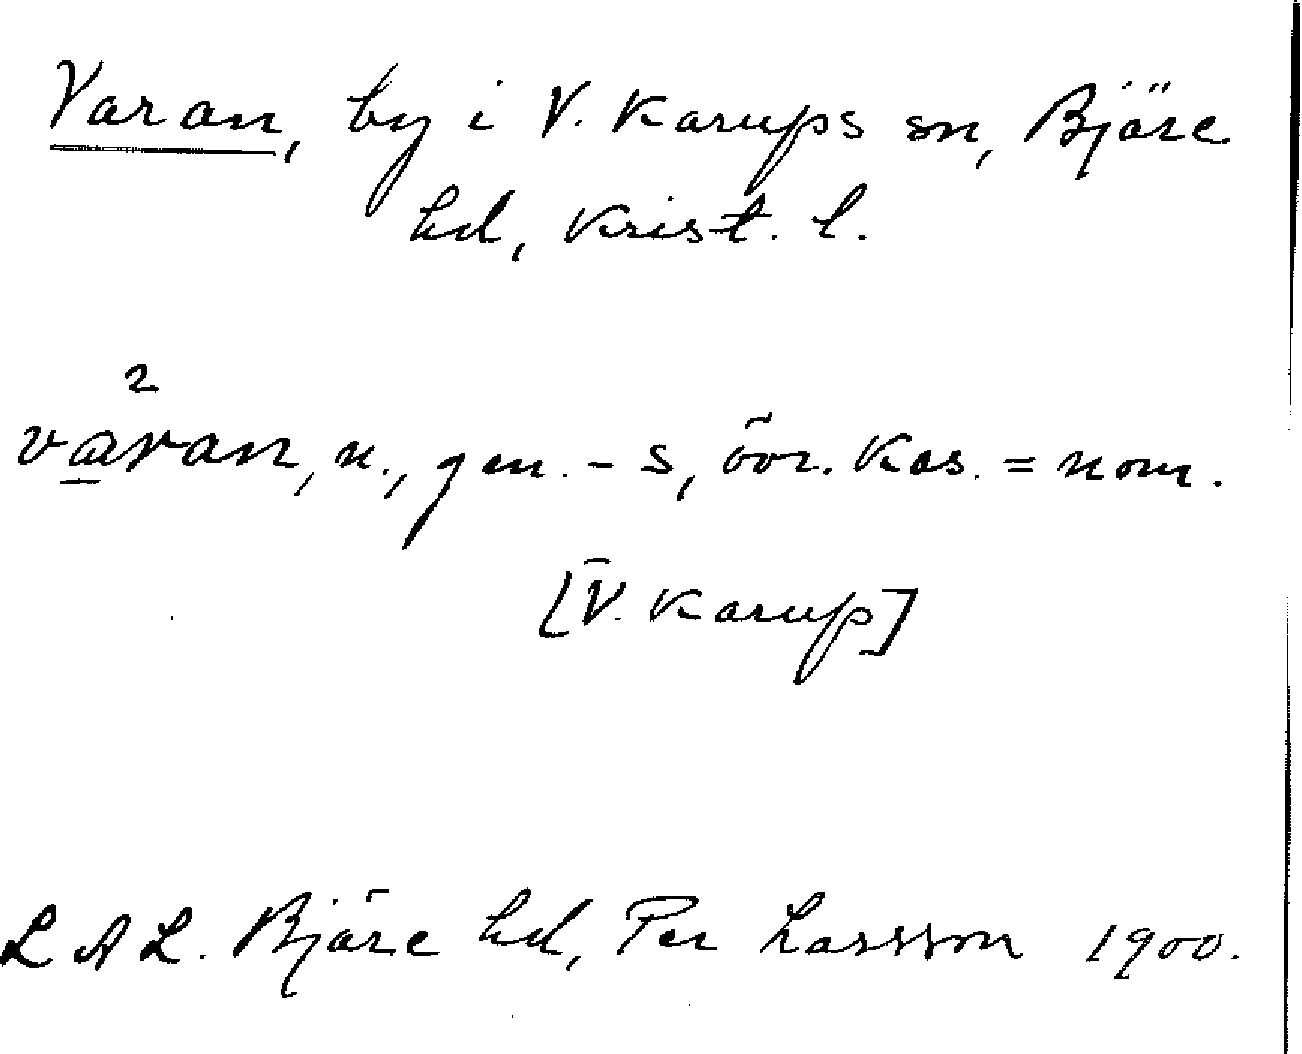 Varan, by i V. Karups sn, Bjäre
hd, Krist. l.
2
varan, n., gen. - s, övr. Kas. = nom.
[V. Karup]
LAL. Bjäre hd, Per Larsson 1900.